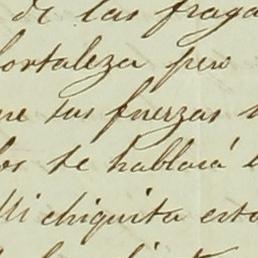 de las fraga
fortaleza pero
que sus fuerzas
los te hablará
Mi chiquita esta